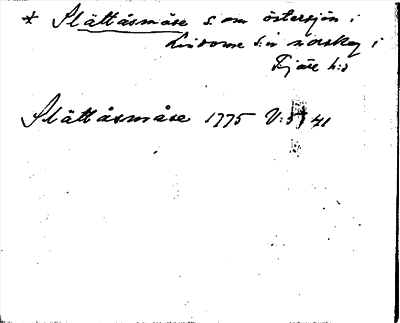 * Slättåsmåse s. om östersjön i
Lindome s:n norskog i
Fjäre h:d
Slättåsmåse 1775 V:5 41